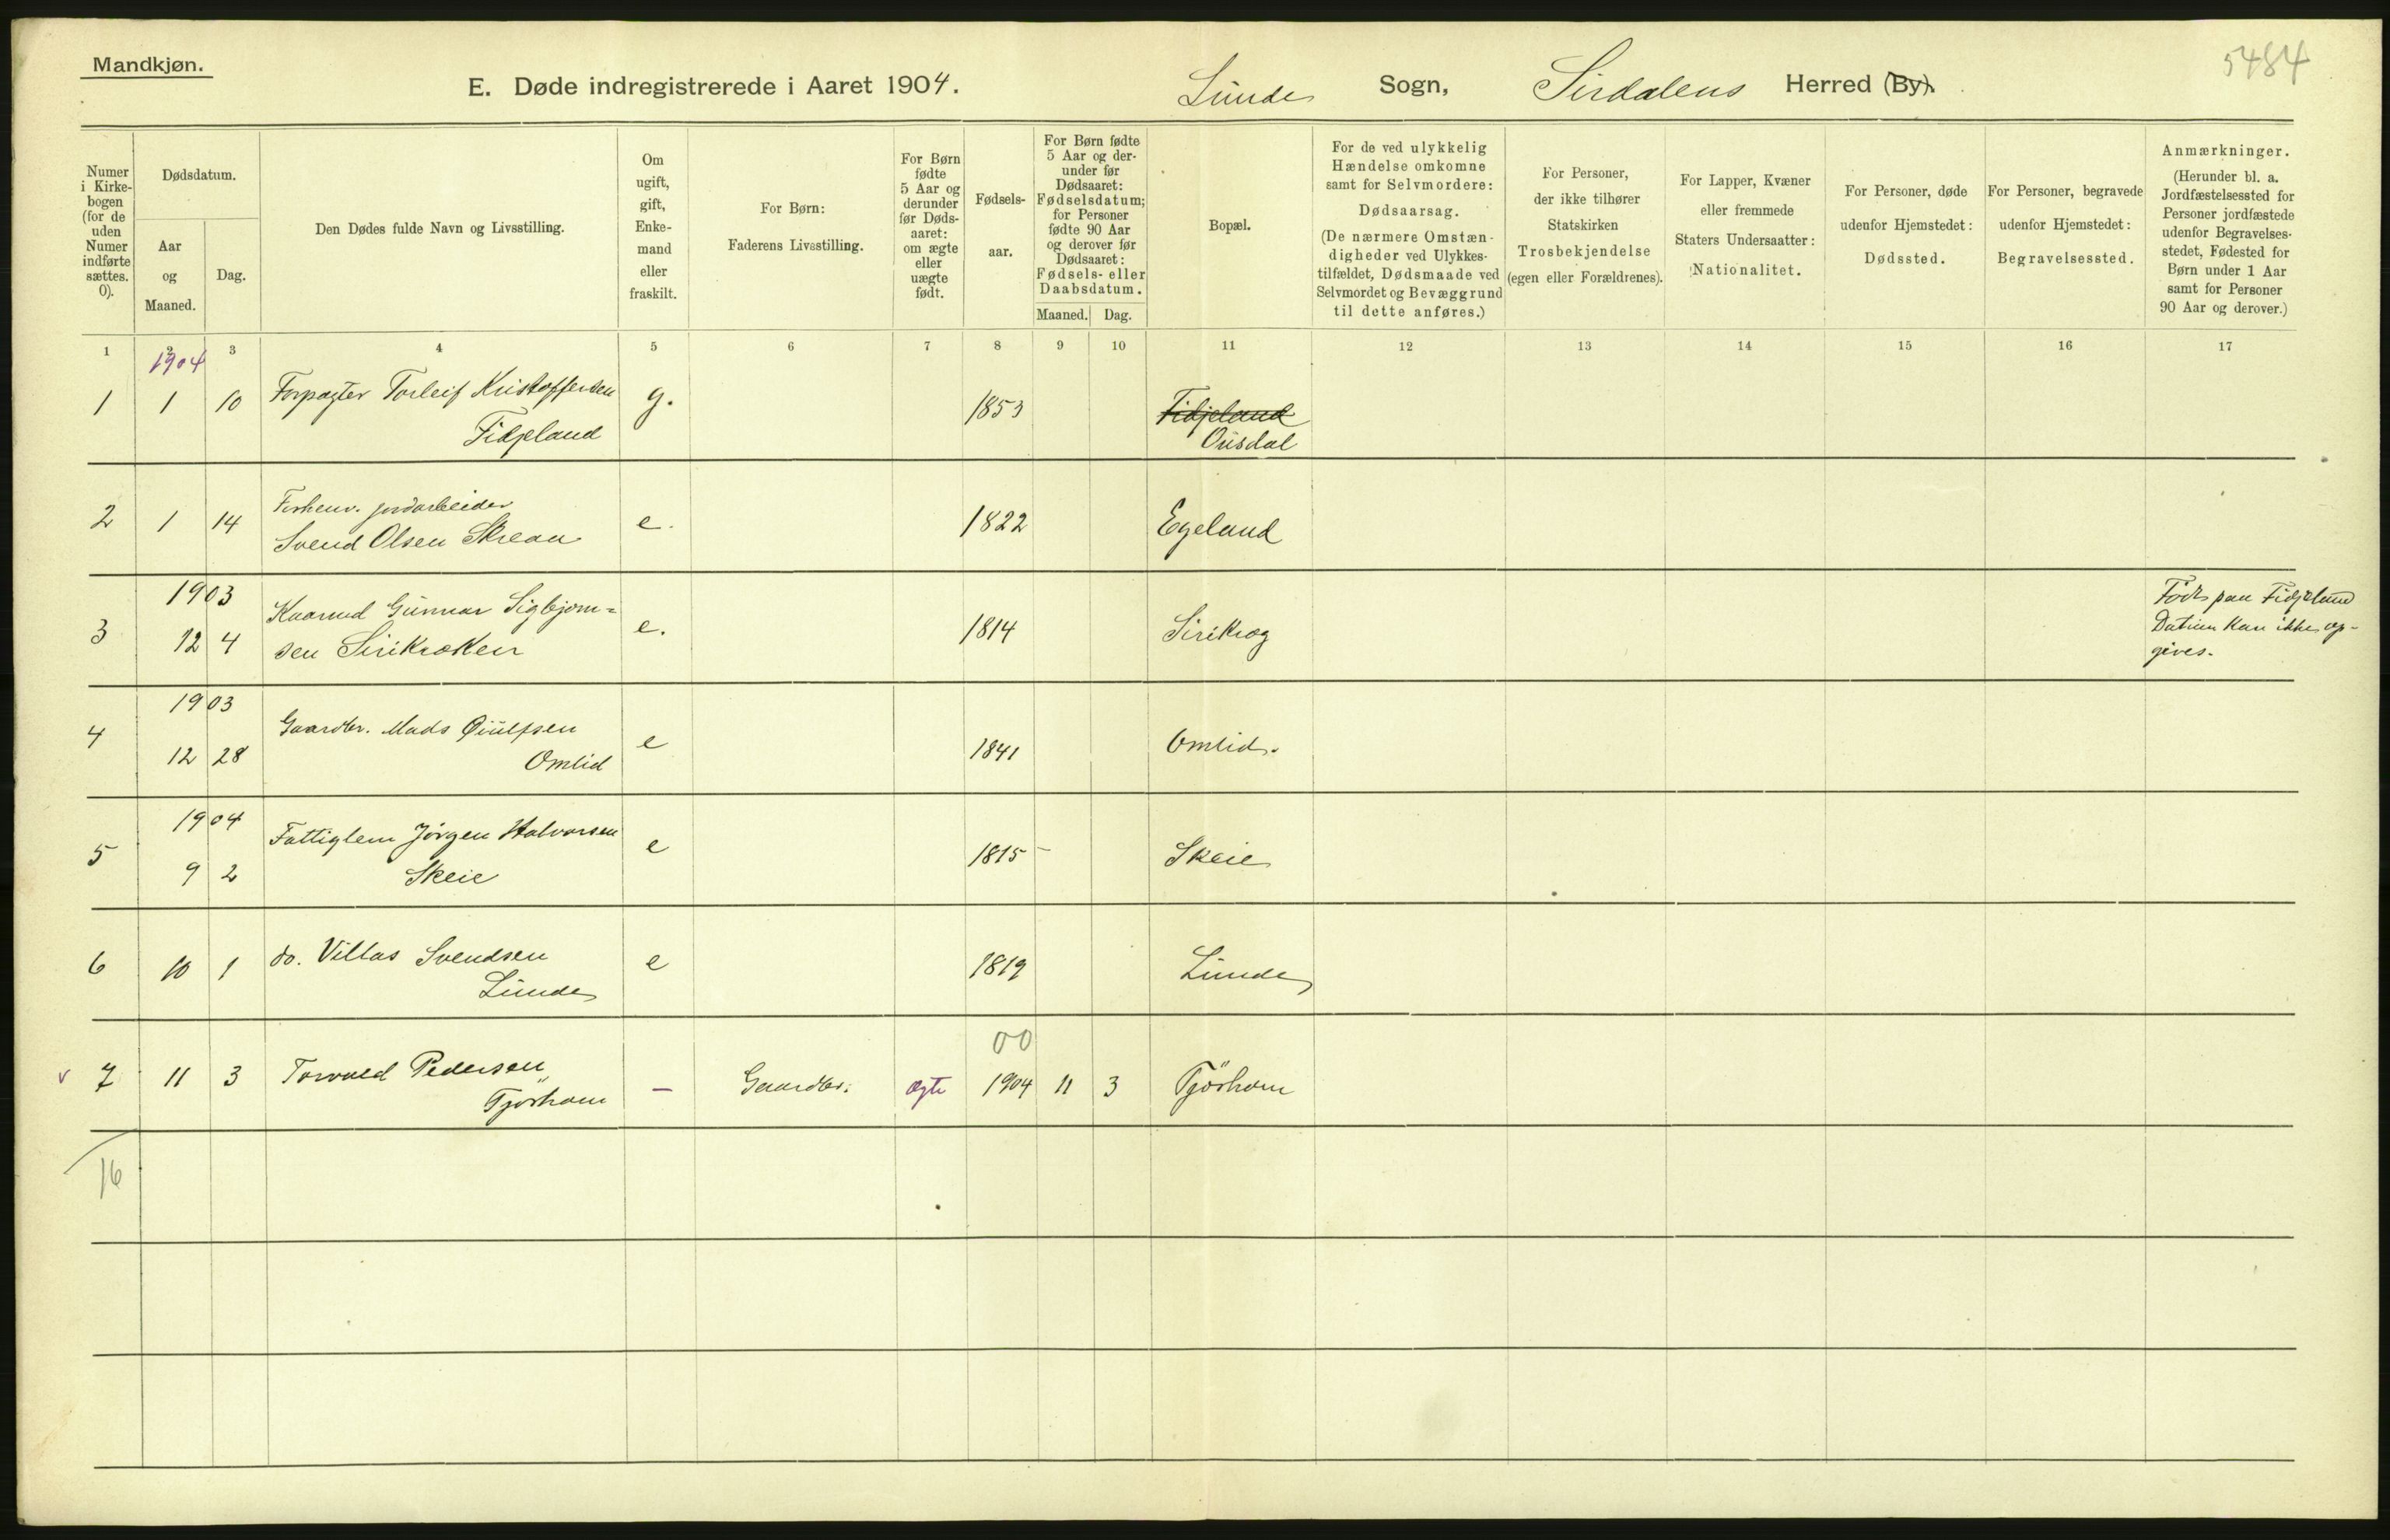 Mandkjøn.
E. Døde indregistrerede i Aaret 1904. Lunde Sogn, Sirdalens Herred (By).
5484
Numer i Kirke-bogen (for de uden Numer indførte sættes. 0).
Dødsdatum.
Aar og Maaned.
Dag.
Den Dødes fulde Navn og Livsstilling.
Om ugift, gift, Enke-mand eller fraskilt.
For Børn: Faderens Livsstilling.
For Børn fødte 5 Aar og derunder før Døds-aaret: om ægte eller uægte født.
Fødsels-aar.
For Børn fødte 5 Aar og der-under før Dødsaaret: Fødselsdatum; for Personer fødte 90 Aar og derover før Dødsaaret: Fødsels- eller Daabsdatum.
Maaned. Dag.
Bopæl.
For de ved ulykkelig Hændelse omkomne samt for Selvmordere: Dødsaarsag. (De nærmere Omstæn-digheder ved Ulykkes-tilfældet, Dødsmaade ved Selvmordet og Bevæggrund til dette anføres.)
For Personer, der ikke tilhører Statskirken Trosbekjendelse (egen eller Forældrenes).
For Lapper, Kvæner eller fremmede Staters Undersaatter: Nationalitet.
For Personer, døde udenfor Hjemstedet: Dødssted.
For Personer, begravede udenfor Hjemstedet: Begravelsessted.
Anmærkninger. (Herunder bl. a. Jordfæstelsessted for Personer jordfæstede udenfor Begravelses-stedet, Fødested for Børn under 1 Aar samt for Personer 90 Aar og derover.)
1 2 3 4 5 6 7 8 9 10 11 12 13 14 15 16 17
1904
1 1 10 Forpagter Torleif Kristoffersen g. 1853 Fidjeland
Fidjeland Ousdal
2 1 14 Forhenv. jordarbeider e. 1822 Egeland
Svend Olsen Skrean
1903
3 12 4 Kaarmd Gunnar Sigbjørn= e. 1814 Sirikrog Født paa Fidjeland
sen Sirikroken Datum kan ikke op-
gives.
1903
4 12 28 Gaardbr. Mads Øiulfsen e 1841 Omlid.
Omlid
1904
5 9 2 Fattiglem Jørgen Halvorsen e 1815 Skeie
Skeie
6 10 1 do. Villas Svendsen e 1819 Lunde
Lunde
00
v 7 11 3 Torvald Pedersen — Gaardbr. ægte 1904 11 3 Tjörhom
Tjörhom
16